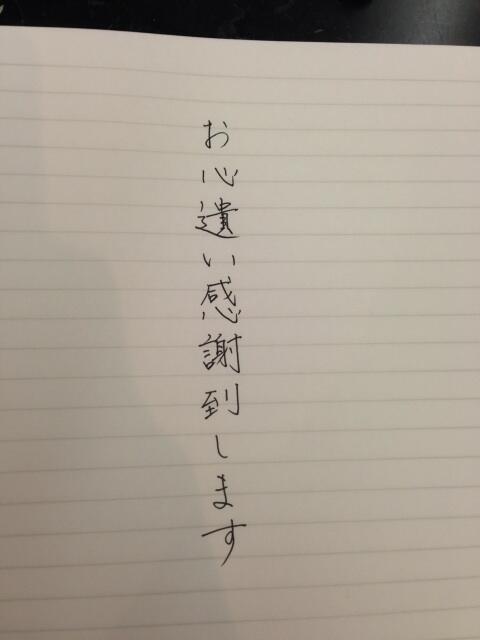 お心遺い感謝到します